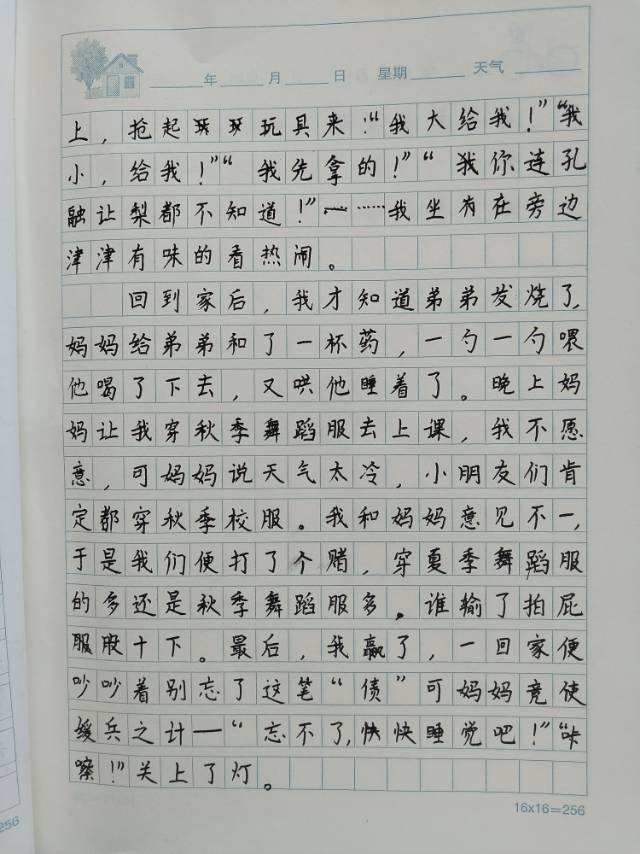 年 月 日 星期 天气
上，抢起玩具来：“我大给我！”“我
小，给我！”“我先拿的！”“我你连孔
融让梨都不知道！”……我坐在旁边
津津有味的看热闹。
回到家后，我才知道弟弟发烧了，
妈妈给弟弟和了一杯药，一勺一勺喂
他喝了下去，又哄他睡着了。晚上妈
妈让我穿秋季舞蹈服去上课，我不愿
意，可妈妈说天气太冷，小朋友们肯
定都穿秋季校服。我和妈妈意见不一，
于是我们便打了个赌，穿夏季舞蹈服
的多还是秋季舞蹈服多。谁输了拍屁
服股十下。最后，我赢了，一回家便
吵吵着别忘了这笔“债”可妈妈竟使
缓兵之计——“忘不了，快快睡觉吧！”“咔
嚓！”关上了灯。
16×16=256
256